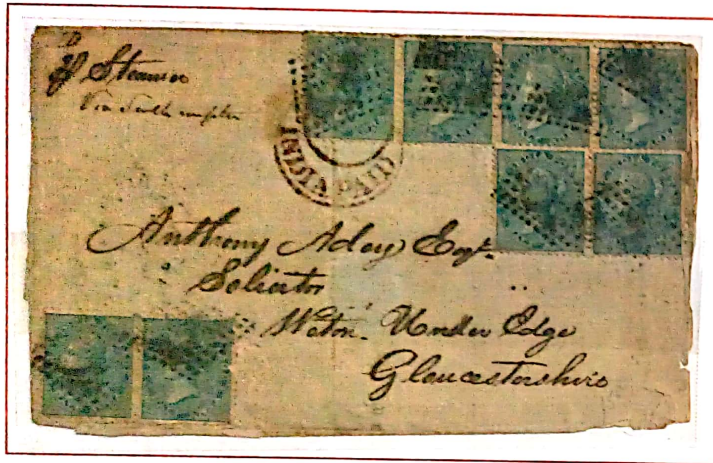 P Steamer
Via Southampton
INDIA PAID
Anthony Adey Esqr.
Solicitor
Wotton Under Edge
Gloucestershire